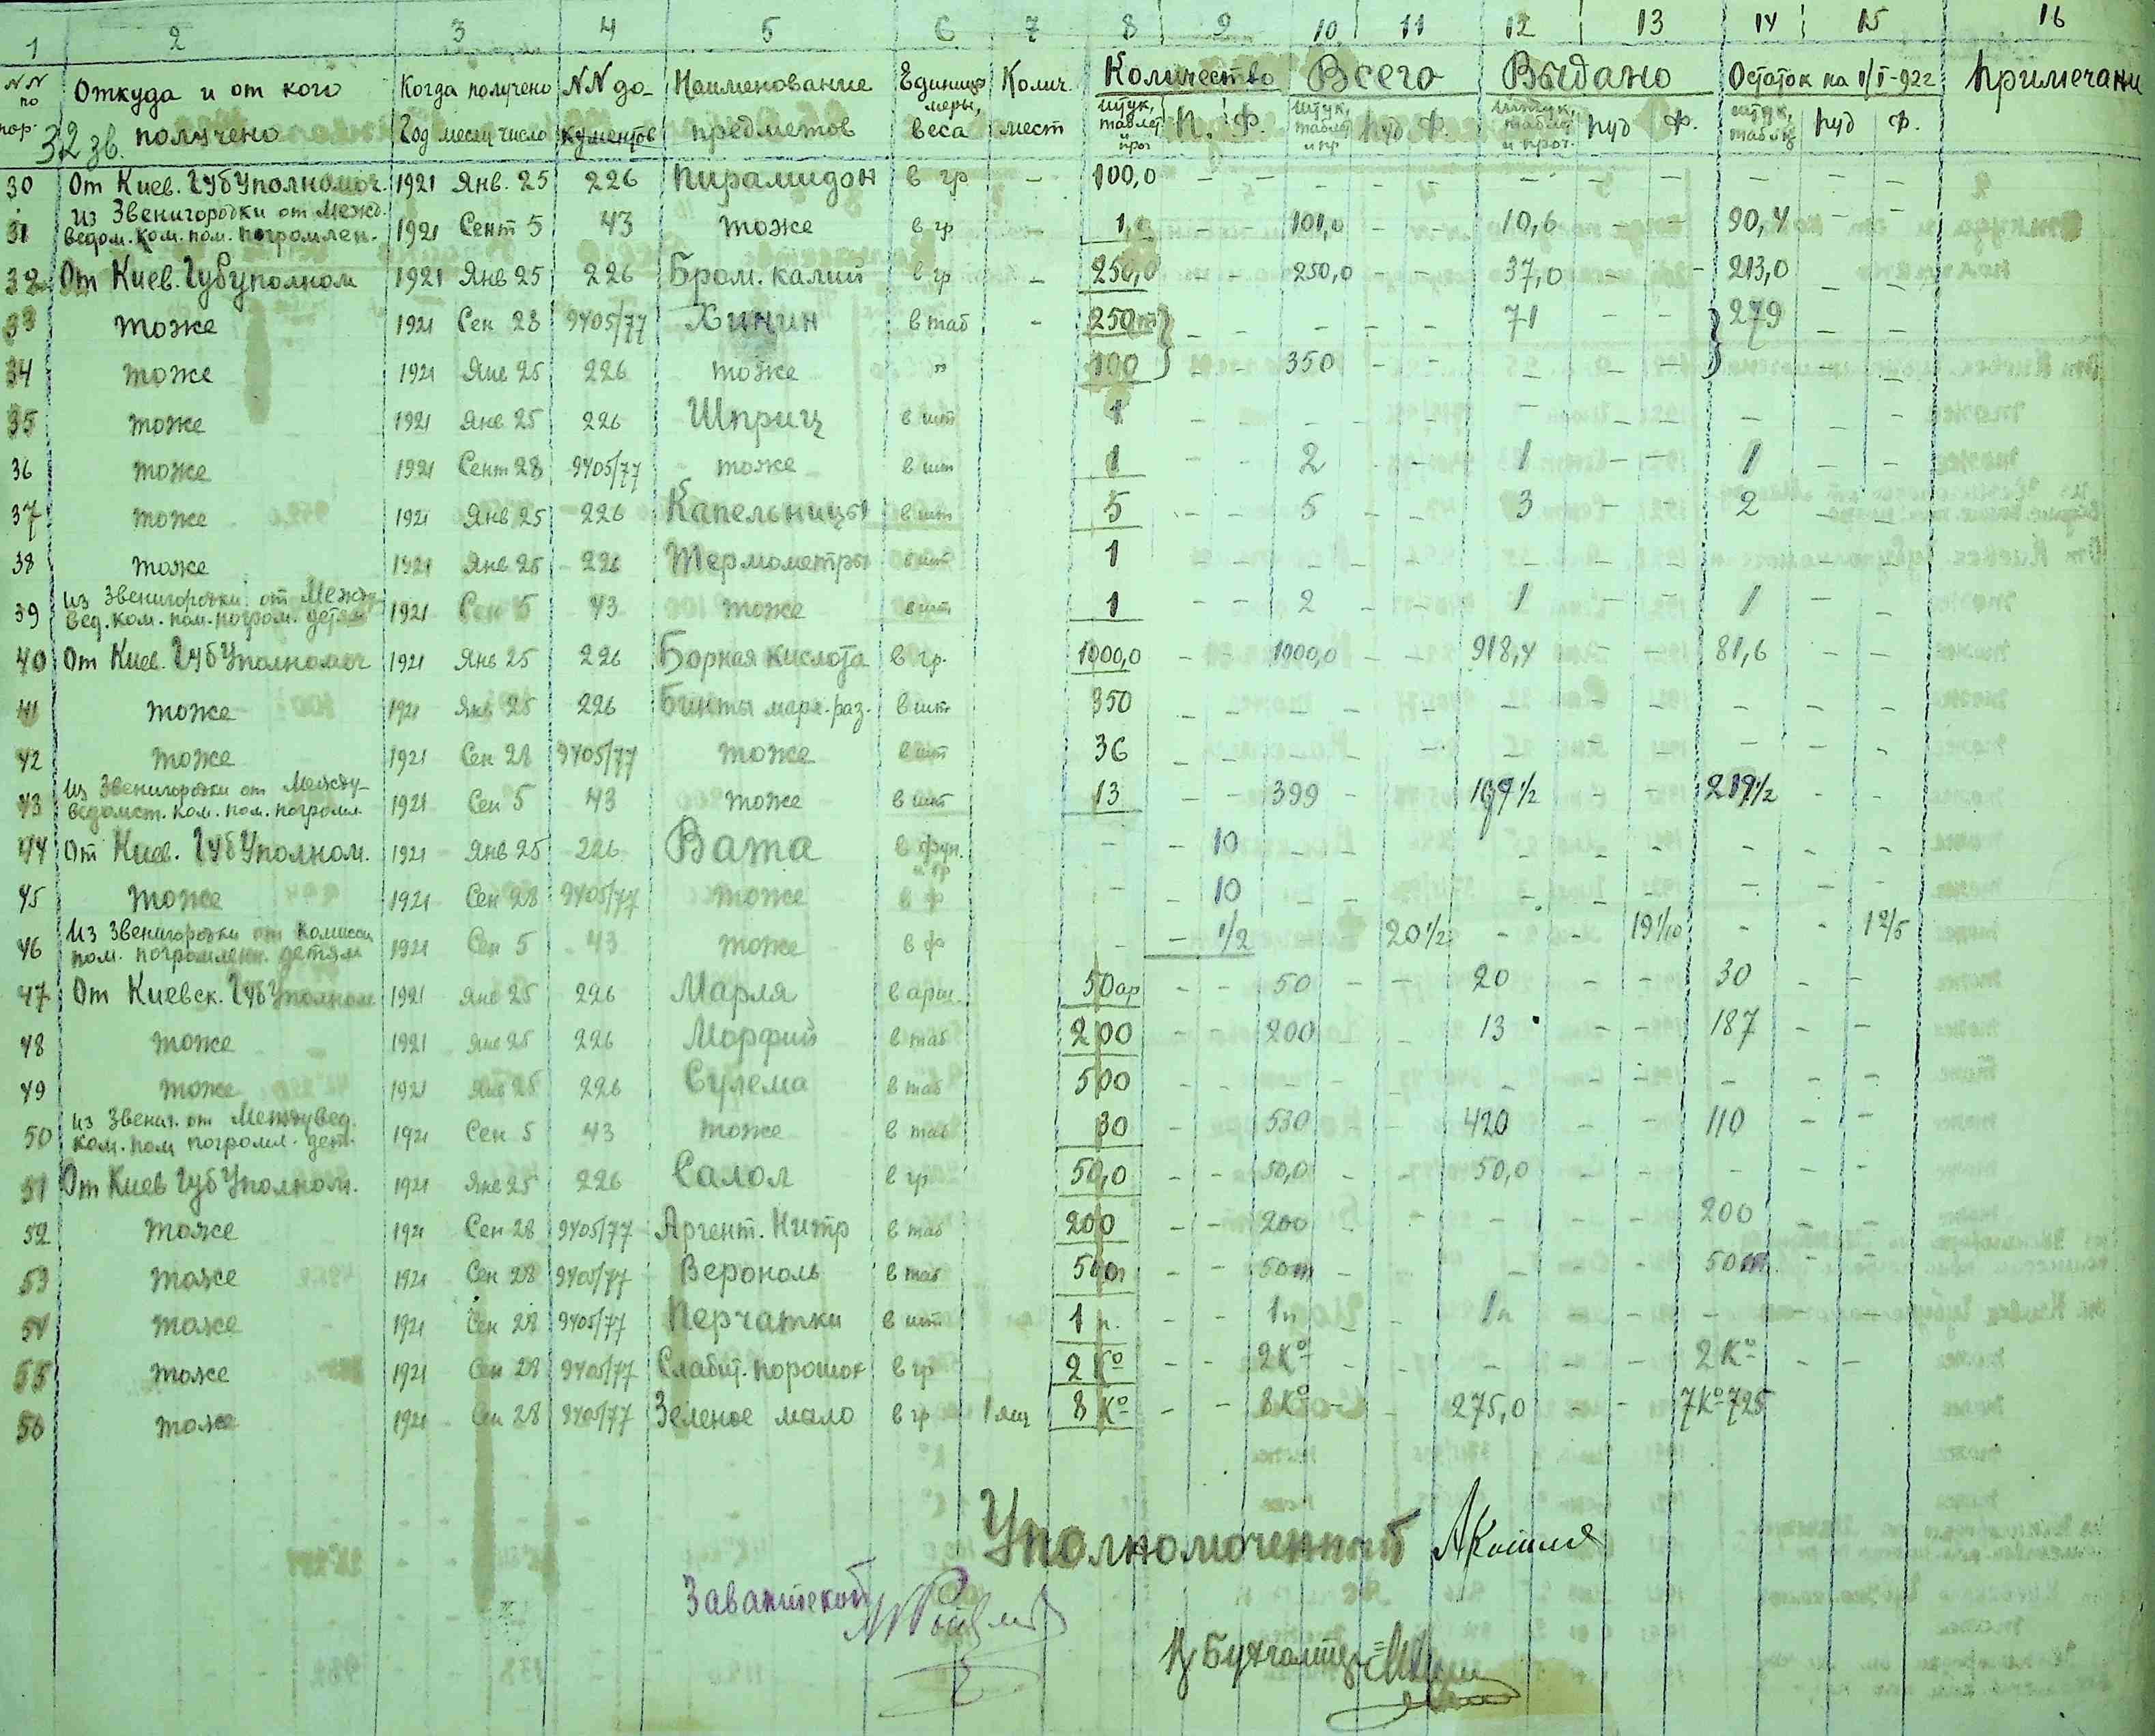 1 2 3 4 5 6 7 8 9 10 11 12 13 14 15 16
NN по пор. Откуда и от кого получено Когда получено Год месец число NN документов Наименование предметов Единица меры, веса Колич. мест Количество штук, таблет. и проч П. Ф. Всего штук, таблет и пр пуд Ф. Выдано штук, таблет и проч. пуд Ф. Остаток на 1/I-922 штук, таблет пуд Ф. Примечани
32 зв.
30 От Киев. ГубУполномоч. 1921 Янв. 25 226 Пирамидон в гр - 100,0 - - - - - - - - - - -
31 из Звенигородки от Межд. ведом. ком. пом. погромлен. 1921 Сент 5 43 тоже в гр 1,0 - - 101,0 - - 10,6 - - 90,4 - -
32 От Киев. Губуполном 1921 Янв 25 226 Бром. калий в гр - 250,0 - - 250,0 - - 37,0 - - 213,0 - -
33 тоже 1921 Сен 28 9405/77 Хинин в таб - 250т - - - - - 71 - - 279 - -
34 тоже 1921 Янв 25 226 тоже " 100 - - 350 - - - - - - -
35 тоже 1921 Янв 25 226 Шприц в шт 1 - - - - - - - - - - -
36 тоже 1921 Сент 28 9405/77 тоже в шт 1 - - 2 - - 1 - - 1 - -
37 тоже 1921 Янв 25 226 Капельницы в шт 5 - - 5 - - 3 - - 2 - -
38 тоже 1921 Янв 25 226 Термометры в шт 1 - - - - - - - - - - -
39 из Звенигородки от Между вед. ком. пом. погром. детям 1921 Сен 5 43 тоже в шт 1 - - 2 - - 1 - - 1 - -
40 От Киев. ГубУполномоч 1921 Янв 25 226 Борная кислота в гр. 1000,0 - - 1000,0 - - 918,4 - - 81,6 - -
41 тоже 1921 Янв 25 226 Бинты марл. раз. в шт. 350 - - - - - - - - - - -
42 тоже 1921 Сен 28 9405/77 тоже в шт 36 - - - - - - - - - - -
43 Из Звенигородки от Между- ведомст. ком. пом. погромл 1921 Сен 5 43 тоже в шт 13 - - 399 - 1/2 - - 1/2 - -
44 От Киев. ГубУполном. 1921 Янв 25 226 Вата в фун. и гр - - 10 - - - - - - - -
45 тоже 1921 Сен 28 9405/77 тоже в ф - - 10 - - - - - - - -
46 Из Звенигородки от Комисси пом. погромленн. детям 1921 Сен 5 43 тоже в ф - - 1/2 20 1/2 - - 19 1/10 - - 1 2/5
47 От Киевск. ГубУполном 1921 Янв 25 226 Марля в арш. 50 ар - - 50 - - 20 - - 30 - -
48 тоже 1921 Янв 25 226 Морфий в таб 200 - - 200 - - 13 - - 187 - -
49 тоже 1921 Янв 25 226 Сулема в таб 500 - - - - - - - - - - -
50 из Звениг. от Междувед. ком. пом погромл. дет. 1921 Сен 5 43 тоже в таб 30 - - 530 - - 420 - - 110 - -
51 От Киев ГубУполном. 1921 Янв 25 226 Салол в гр 50,0 - - 50,0 - - 50,0 - - - - -
52 тоже 1921 Сен 28 9405/77 Аргент. Нитр в таб 200 - - 200 - - - - - 200 - -
53 тоже 1921 Сен 28 9405/77 Верональ в таб 50т - - 50т - - - - - 50т - -
54 тоже 1921 Сен 28 9405/77 Перчатки в шт 1 п. - - 1п - - 1п - - - - -
55 тоже 1921 Сен 28 9405/77 Слабит. порошок в гр 2 Кº - - 2Кº - - - - - 2 Кº - -
56 тоже 1921 Сен 28 9405/77 Зеленое мыло в гр 1 ящ 8 Кº - - 8Кº - - 275,0 - - 7Кº 725
Уполномоченный
Заваптекой
Бухгалтер